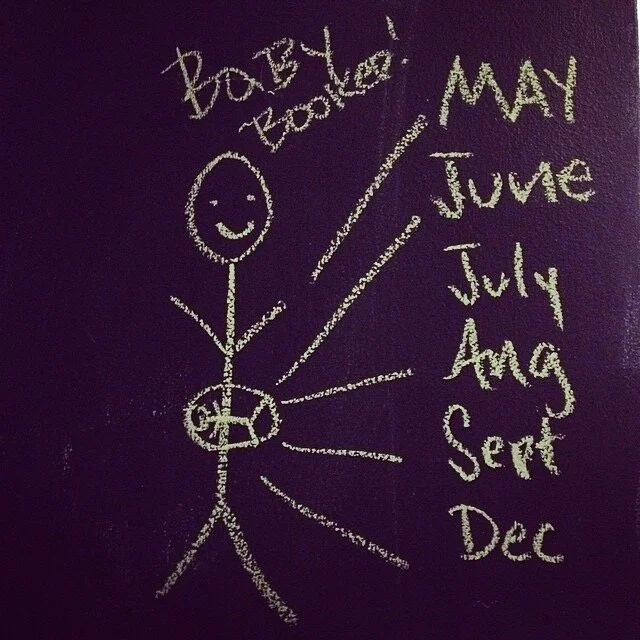 BaBy
Booker!
MAY
June
July
Aug
Sept
Dec